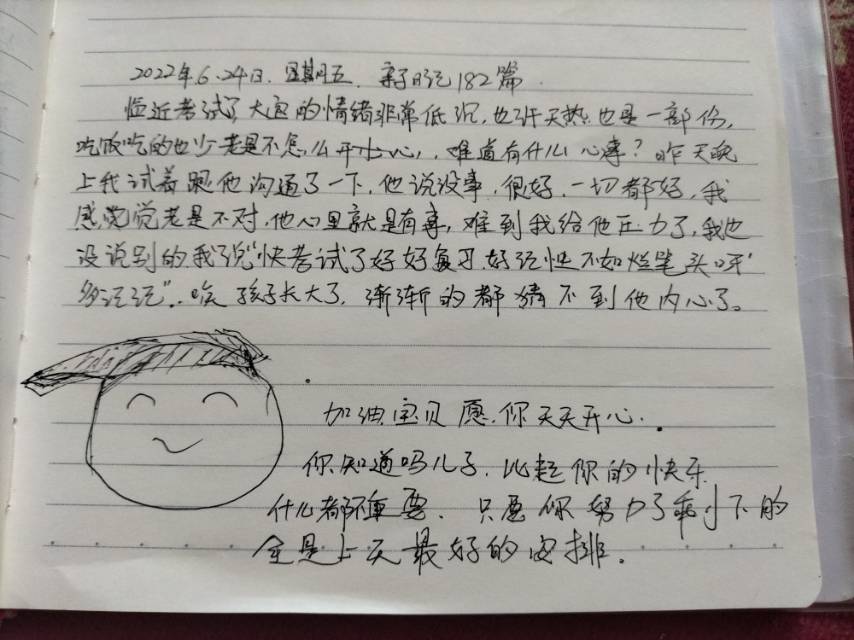 2022年6.24日. 星期五. 亲子日记182篇.
临近考试了大宝的情绪非常低沉,也许天热也是一部份,
吃饭吃的也少老是不怎么开心,难道有什么心事?昨天晚
上我试着跟他沟通了一下,他说没事,很好,一切都好,我
感觉觉老是不对,他心里就是有事,难到我给他压力了,我也
没说别的,我说"快考试了好好复习,好记性不如烂笔头呀
多记记".唉 孩子长大了,渐渐的都猜不到他内心了。
加油宝贝愿你天天开心.
你知道吗儿子.比起你的快乐
什么都不重要. 只愿你努力了剩下的
全是上天最好的安排.